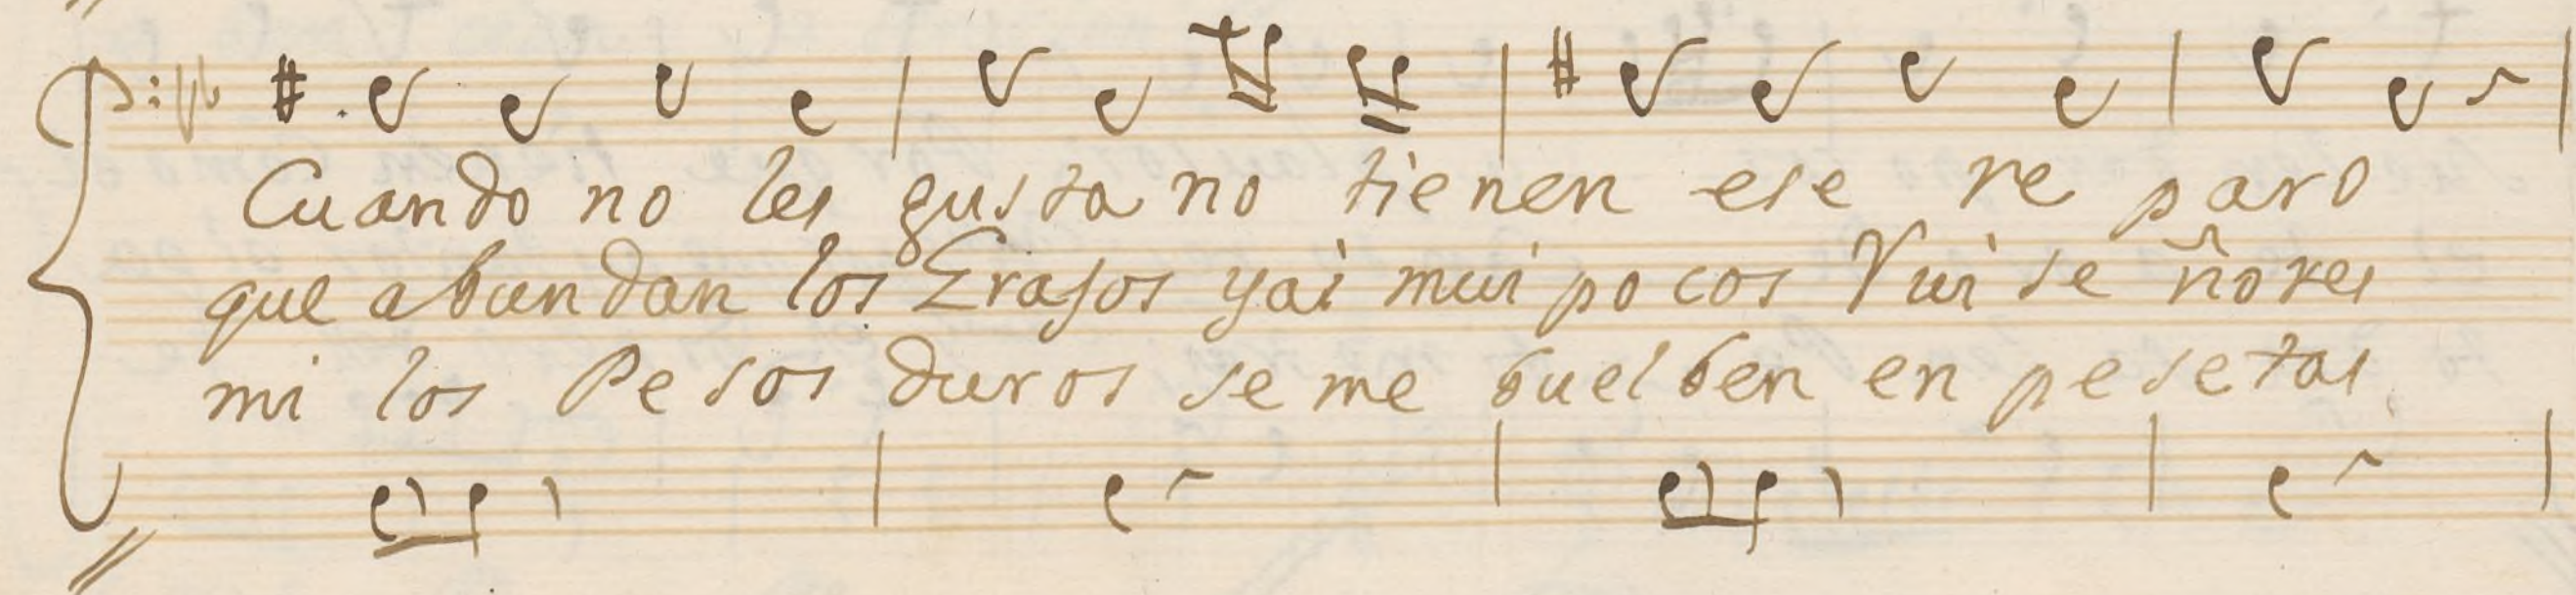 Cuando no les gusta no tienen ese re paro
que abundan los Erasos yai mui pocos Rui se ñores
mi los Pesos duros se me buelben en pesetas